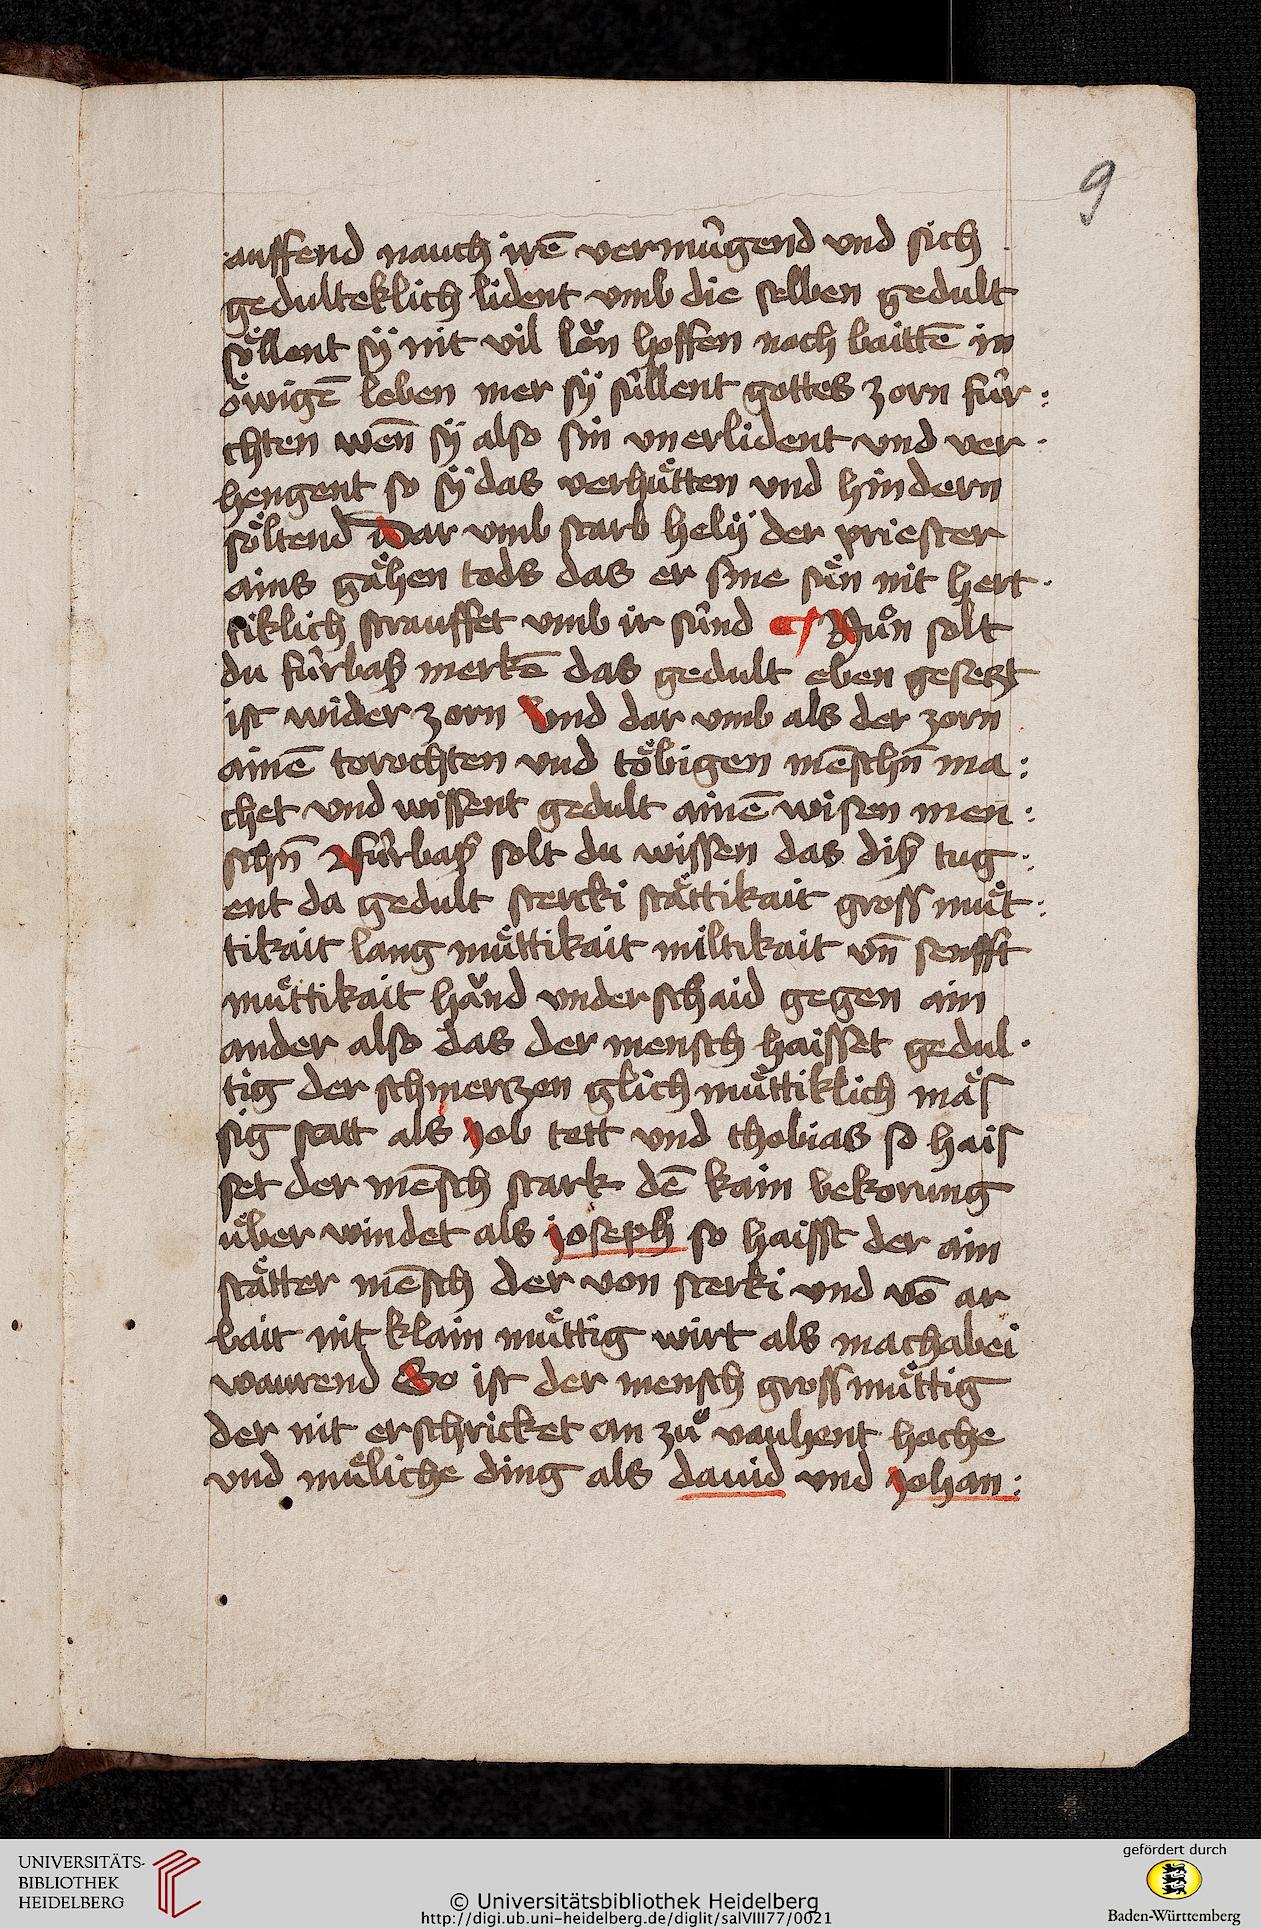 9
auffend nauch irē vermúgend vnd sich
gedulteklich lident vmb die selben gedult
söllent sÿ nit vil lŏn hoffen noch baittē in
öwigē leben mer sÿ súllent gottes zorn fúr:
chten wen̄ sÿ also sin vnerlident vnd ver-
hengent so sÿ das verhuͤtten vnd hindern
söltend Dar vmb starb helÿ der priester
ains gaͤhen tods das er sine suͤn nit hert-
tiklich strauffet vmb ir súnd ¶ Nuͦn solt
du fúrbaß merkē das gedult eben gesetzt
ist wider zorn Vnd dar vmb als der zorn
ainē torochten vnd toͤbigen mēschn̄ ma:
chet vnd wissent gedult ainē wisen men:
schn̄ Fúrbaß solt du wissen das diß tug-
ent da gedult stercki staͤttikait gross muͤt:
tikait lang muͤttikait miltikait vn̄ senfft
muͤttikait hănd vnderschaid gegen ain
ander also das der mensch haisset gedul-
tig der schmertzen glich muͤttiklich maͤs
sig statt als Job tett vnd thobias so hais
set der mēsch stark dē kain bekorung
uͤber windet als joseph so haisst der ain
staͤtter mēsch der von sterki vnd vō ar
bait nit klain muͤttig wirt als machabei
waurend So ist der mensch gross muͤttig
der nit erschricket an zuͦ vauhent hoche
vnd muͤliche ding als dauid vnd Johan:
UNIVERSITÄTS-
BIBLIOTHEK
HEIDELBERG
© Universitätsbibliothek Heidelberg
http://digi.ub.uni-heidelberg.de/diglit/salVIII77/0021
gefördert durch
Baden-Württemberg